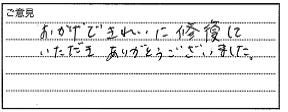 ご意見
おかげできれいに修復して
いただき ありがとうございました。